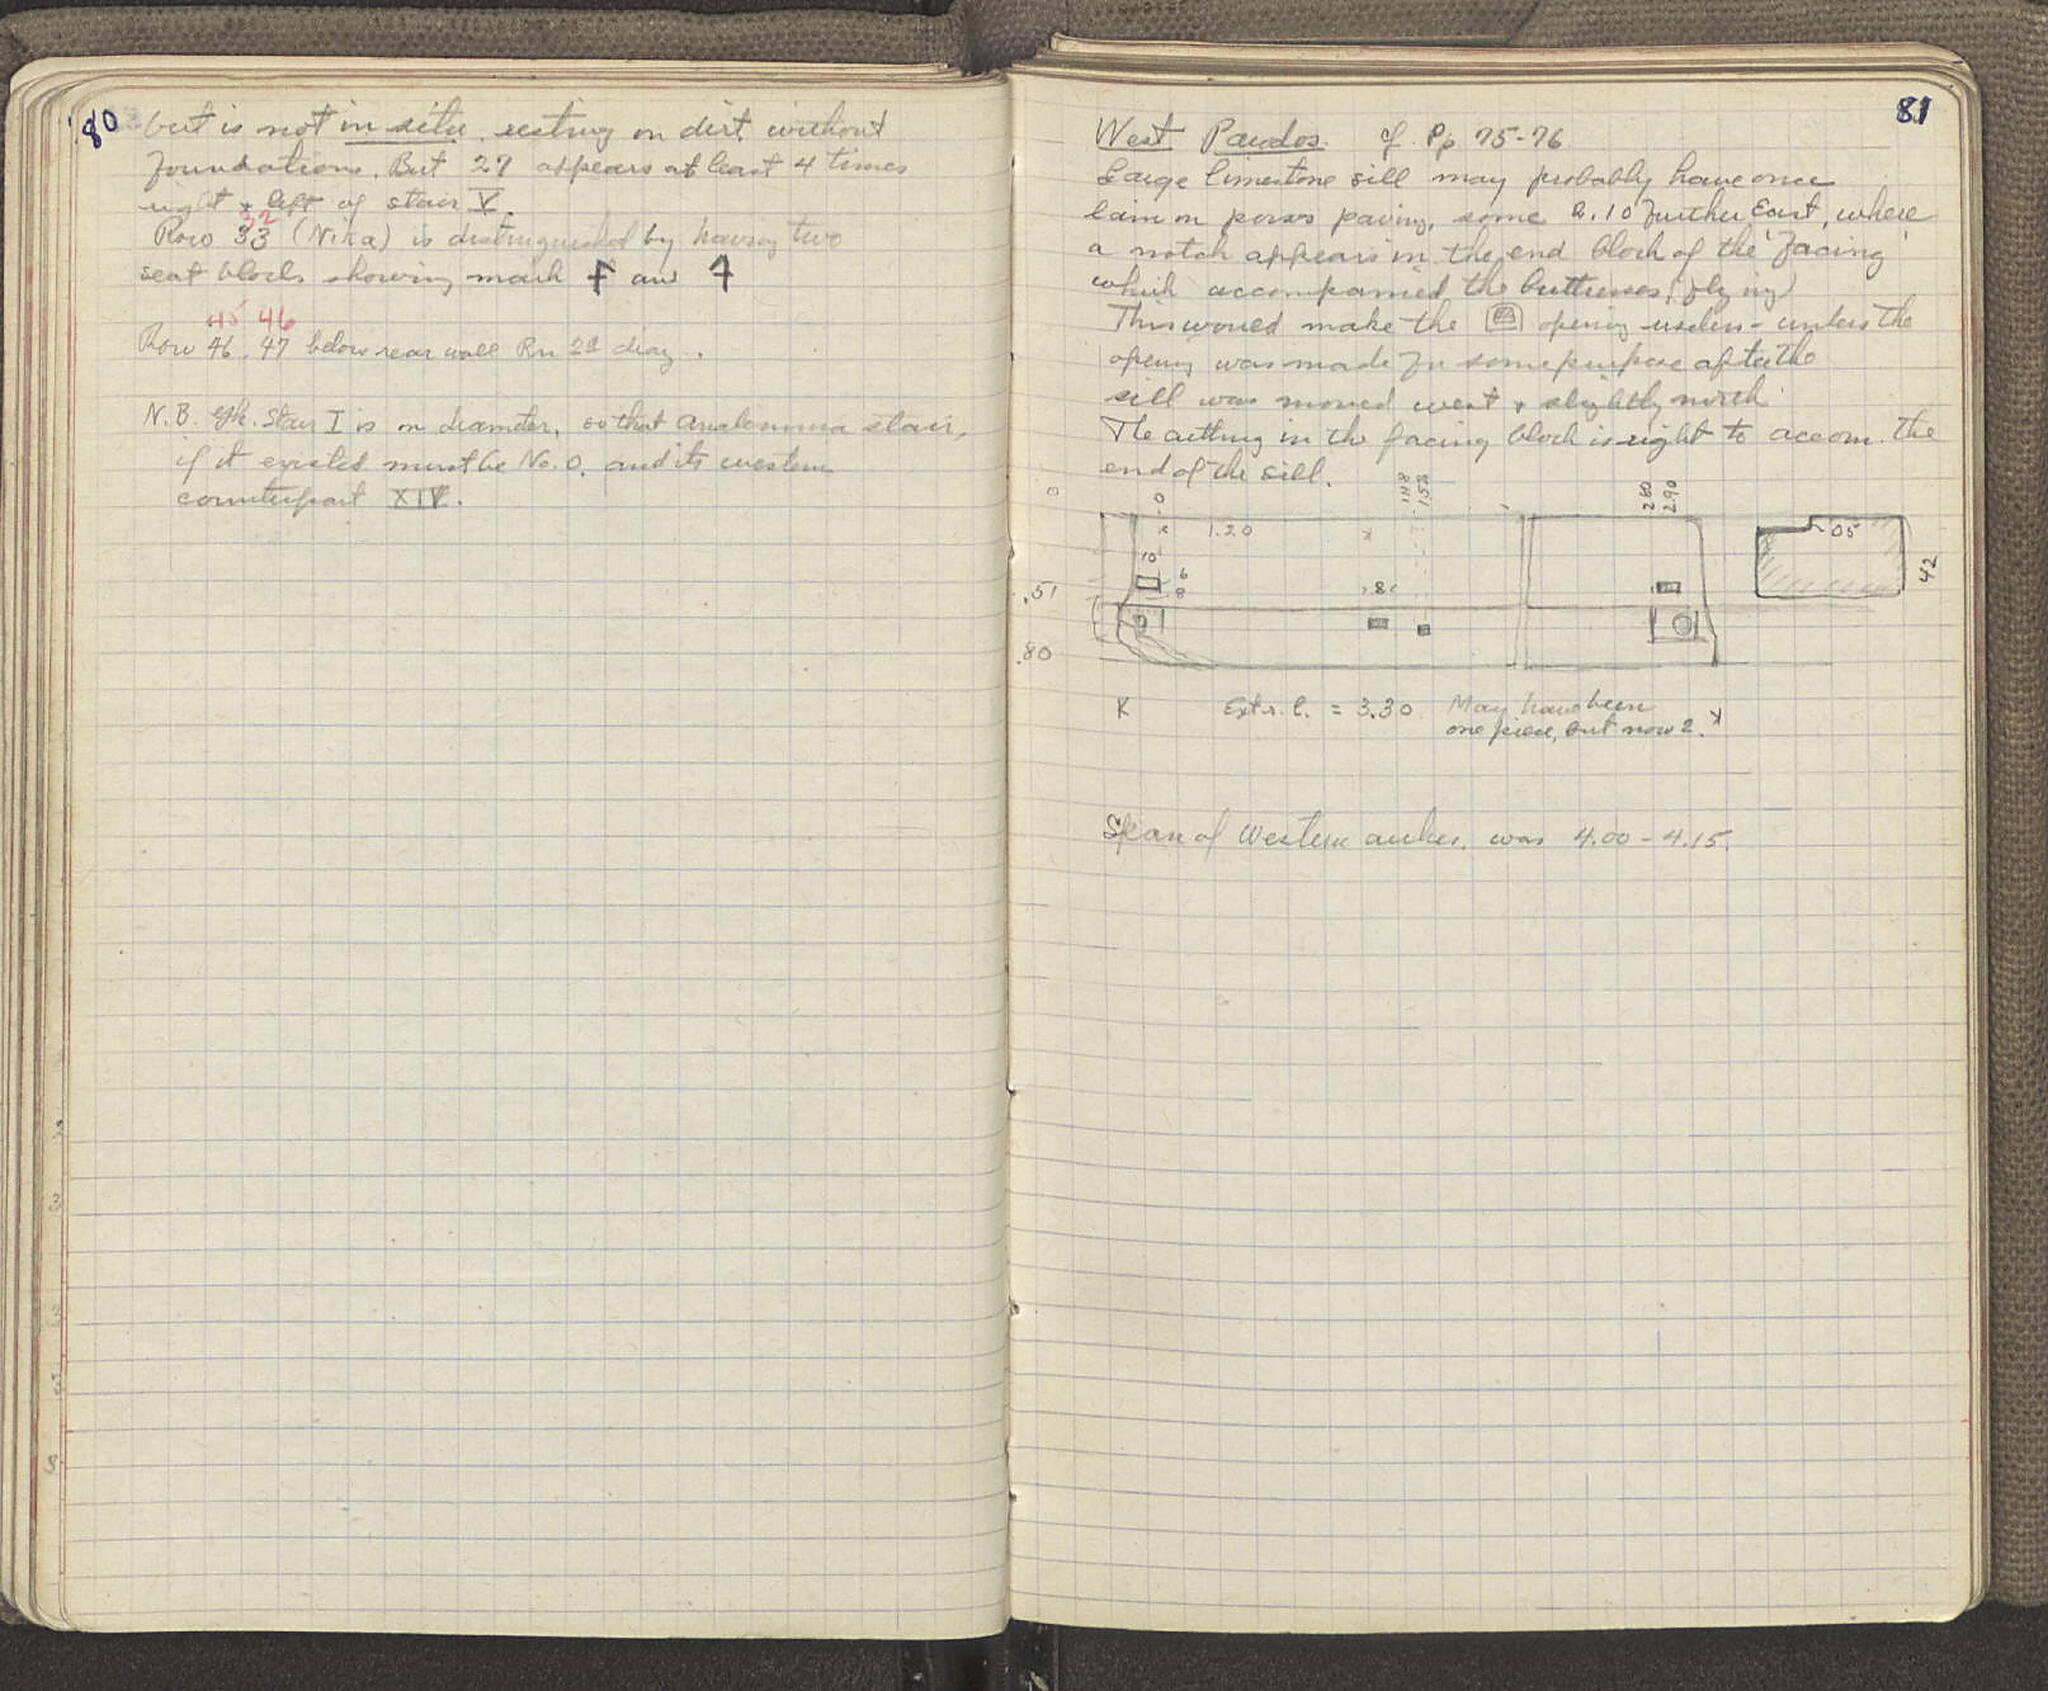 80
but is not in situ, resting on dirt without
foundations. But 27 appears at least 4 times
right & left of stair V.
32
Row 33 (Nika) is distinguished by having two
seat blocks showing mark F and
45 46
Row 46, 47 below rear wall Rn 22 diaz.
N.B. Gk. Stair I is on diameter, so that analemma stair,
if it existed must be No. 0. and its western
counterpart XIV.
81
West Parodos. cf. Pp 75-76
Large limestone sill may probably have once
lain on poros paving, some 2.10 further East, where
a notch appears in the end block of the 'facing'
which accompanied the buttresses (flying)
This would make the opening useless - unless the
opening was made for some purpose after the
sill was moved west & slightly north.
The cutting in the facing block is right to accom. the
end of the sill.
0
0
148
152
280
290
1.20
05
42
10
6
8
8
.51
.80
Extr. l. = 3.30 May have been
one piece, but now 2.
Span of Western arches, was 4.00 - 4.15.